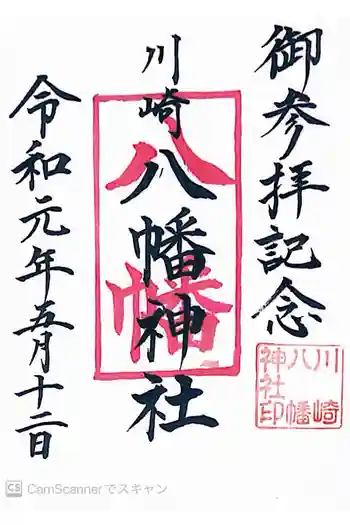 御参拝記念
川崎八幡神社
八幡
川崎
八幡
神社印
令和元年五月十二日
CS CamScannerでスキャン